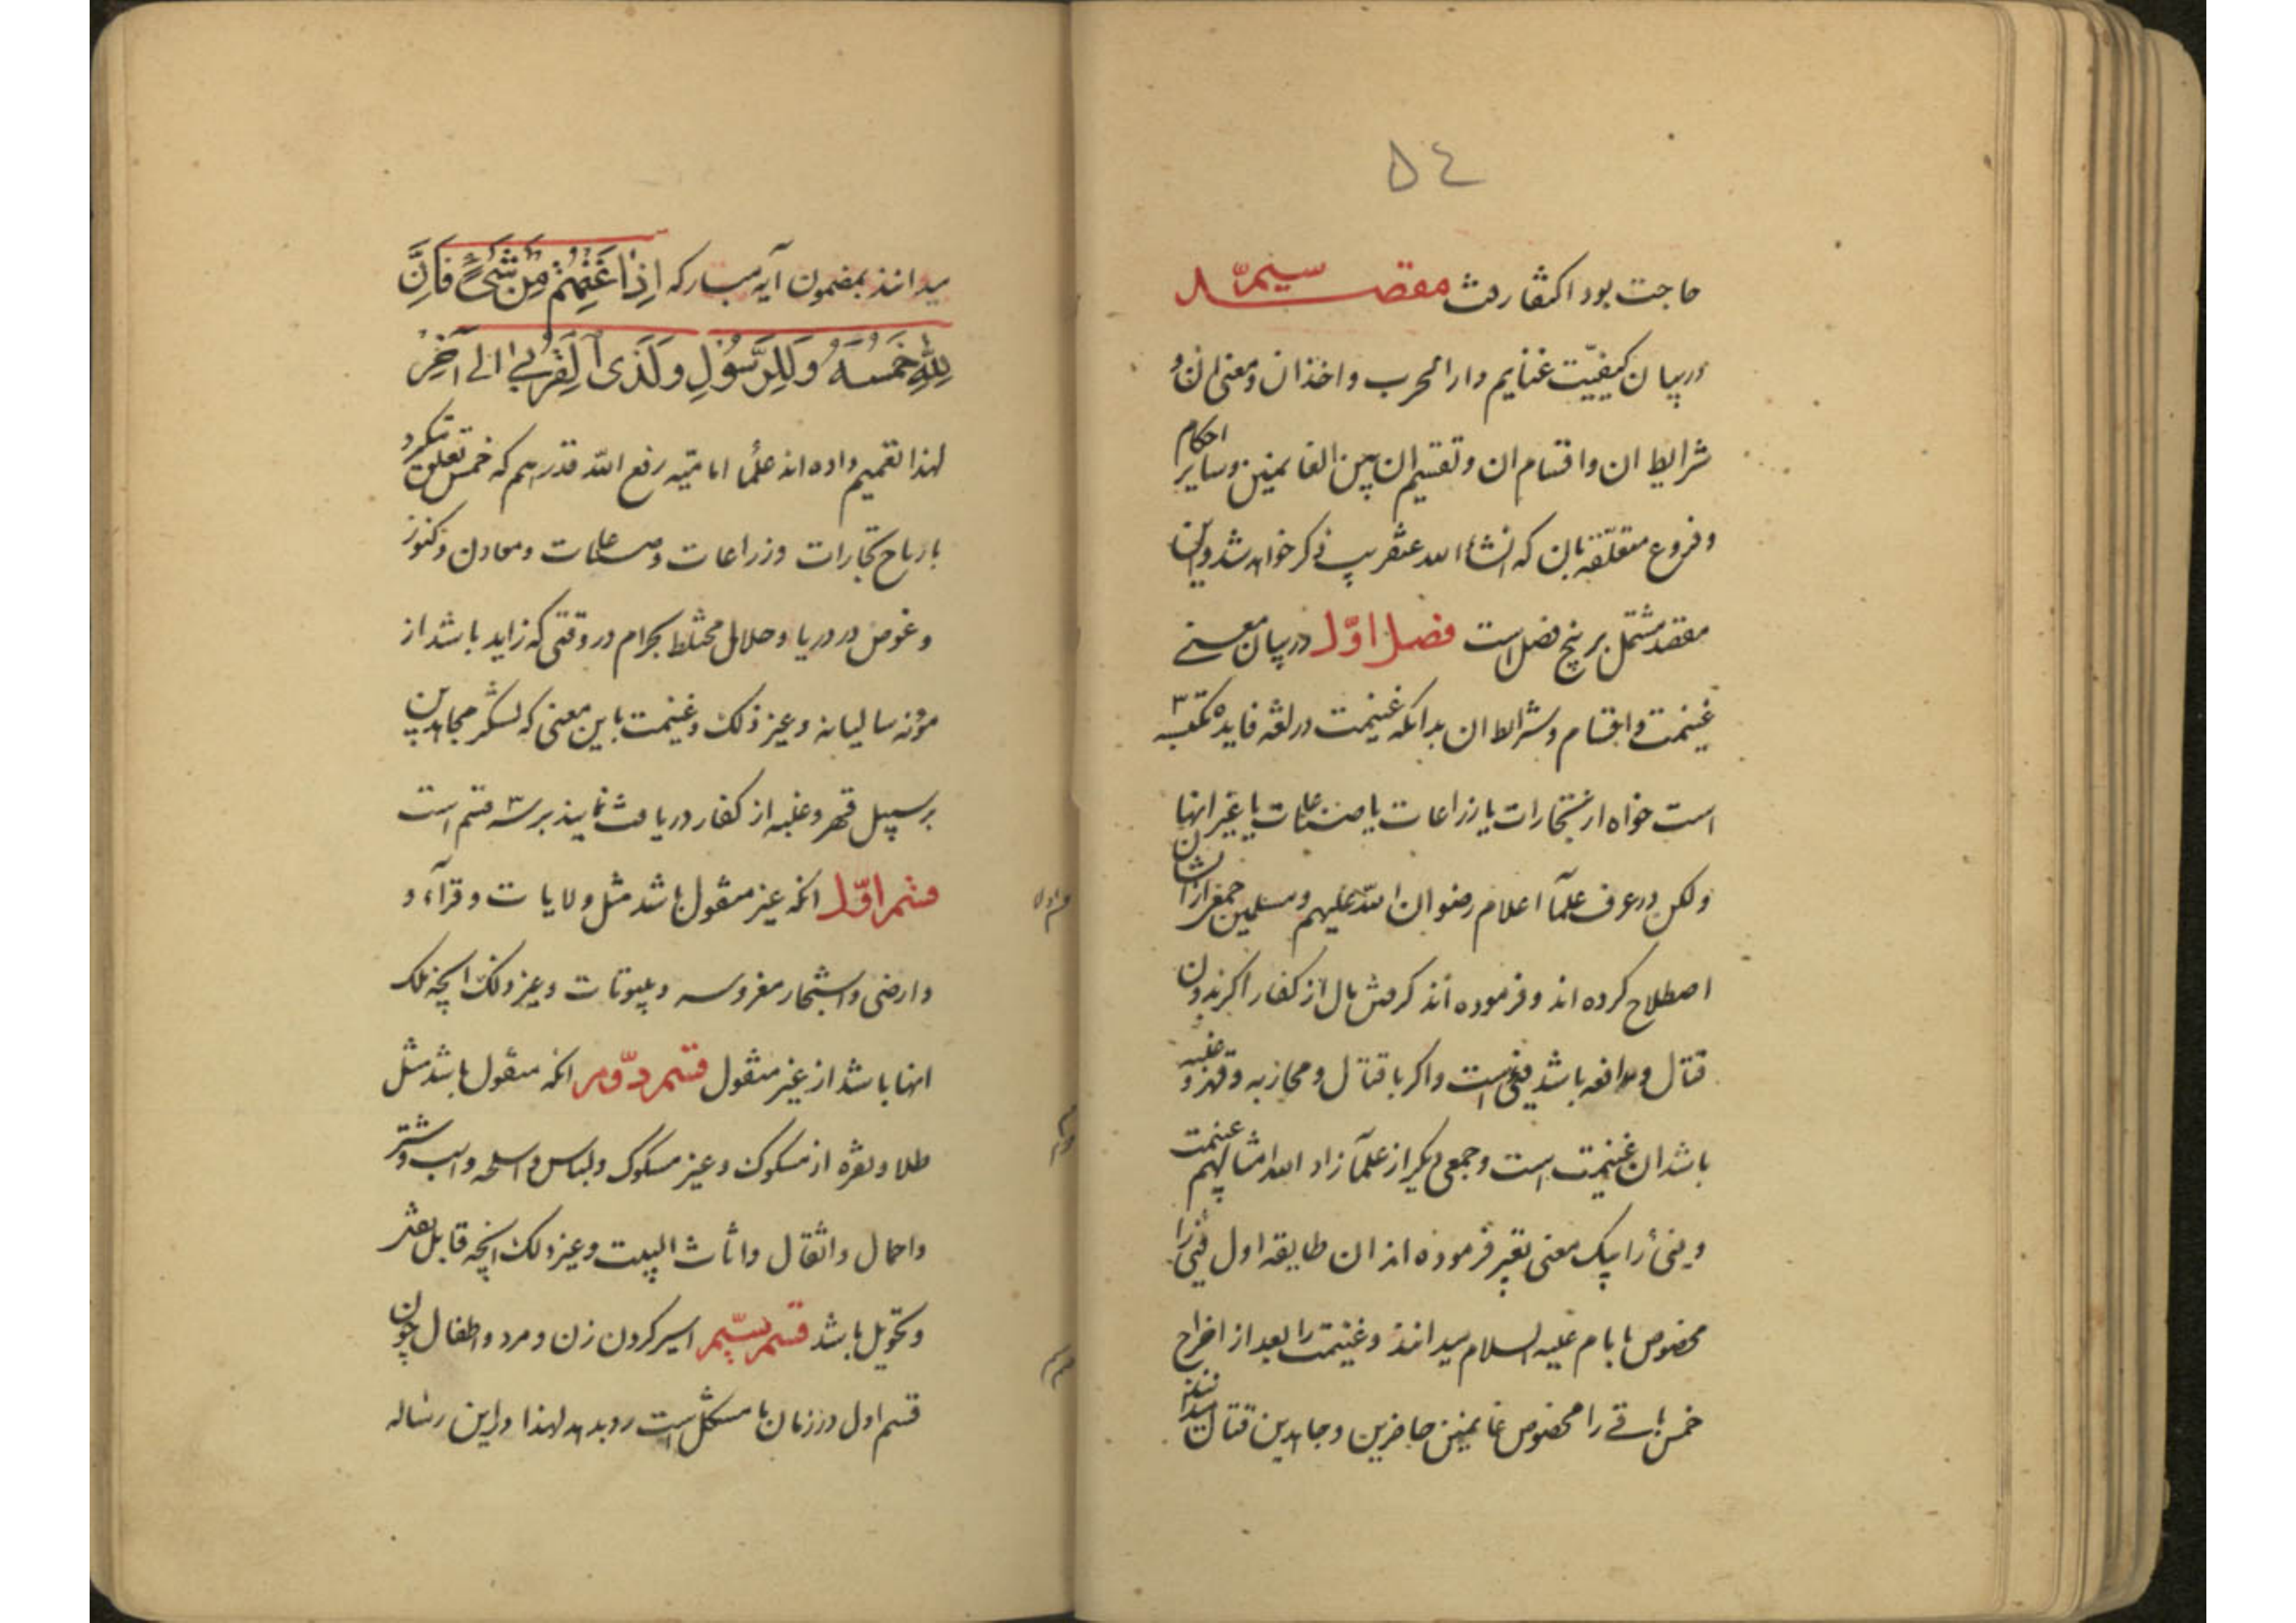 ٥٤
حاجت بود اکتفا رفت مقصد سیم
در بیان کیفیّت غنایم دار الحرب و اخذ ان و معنی ان و
شرایط ان و اقسام ان و تقسیم ان بین الغانمین و سایر احکام
و فروع متعلّقه بان که انشاء الله عنقریب ذکر خواهد شد و این
مقصد مشتمل بر پنج فصل است فصل اوّل در بیان معنی
غنیمت و اقسام و شرایط ان بدانکه غنیمت در لغه فایده مکتسبه
است خواه از تجارات یا زراعات یا صناعات یا غیر اینها
ولکن در عرف علمآ اعلام رضوان الله علیهم و مسلمین جمعی از ایشان
اصطلاح کرده اند و فرموده اند گرفتن مال از کفار اگر بدون
قتال و مدافعه باشد فیئ است و اگر با قتال و محاربه و قهر و غلبه
باشد ان غنیمت است و جمعی دیگر از علمآ زاد الله امثالهم غنیمت
و فیئ را بیک معنی تعبیر فرموده اند ان طایفه اول فیئ را
مخصوص بامام علیه السلام میدانند و غنیمت را بعد از اخراج
خمس باقی را مخصوص غانمین حاضرین و جاهدین قتال میدانند
میدانند بمضمون آیه مبارکه اِذٰا غَنِمْتُمْ مِنْ شَیْءٍ فَاِنَّ
لِلّٰهِ خُمُسَهُ وَ لِلرَّسُولِ وَ لِذَی الْقُرْبیٰ الی آخِرْ
لهذا تعمیم داده اند علمٓا امامیّه رفع الله قدرهم که خمس تعلق میگیرد
بارباح تجارات و زراعات و صناعات و معادن و کنوز
و غوص در دریا و حلال مختلط بحرام در وقتی که زاید باشد از
مؤنه سالیانه و غیر ذلک و غنیمت باین معنی که لشکر مجاهدین
بر سبیل قهر و غلبه از کفار دریافت نمایند بر سه قسم است
قسم اوّل انکه غیر منقول باشد مثل ولایات و قرآء و
و ارضی و اشجار مغروسه و بیوتات و غیر ذلک انچه ملک
انها باشد از غیر منقول قسم دوّم انکه منقول باشد مثل
طلا و نقره از مسکوک و غیر مسکوک و لباس و اسلحه و اسب و شتر
و احمال و اثقال و اثاث البیت و غیر ذلک انچه قابل نقل
و تحویل باشد قسم سیّم اسیر کردن زن و مرد و اطفال چون
قسم اول در زمان ما مشکل است رو بدهد لهذا در این رساله